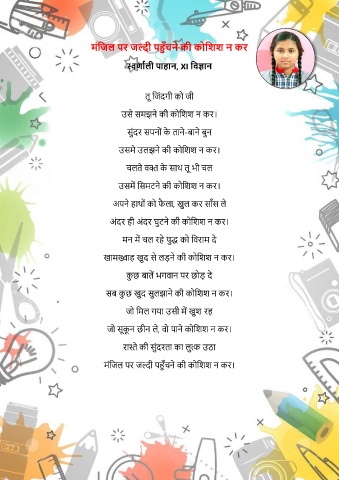 मंजिल पर जल्दी पहुँचने की कोशिश न कर
स्वर्णाली पाहान, XI विज्ञान
तू जिंदगी को जी
उसे समझने की कोशिश न कर।
सुंदर सपनों के ताने-बाने बुन
उसमे उलझने की कोशिश न कर।
चलते वक्त के साथ तू भी चल
उसमें सिमटने की कोशिश न कर।
अपने हाथों को फैला, खुल कर साँस ले
अंदर ही अंदर घुटने की कोशिश न कर।
मन में चल रहे युद्ध को विराम दे
खामख्वाह खुद से लड़ने की कोशिश न कर।
कुछ बातें भगवान पर छोड़ दे
सब कुछ खुद सुलझाने की कोशिश न कर।
जो मिल गया उसी में खुश रह
जो सुकून छीन ले, वो पाने कोशिश न कर।
रास्ते की सुंदरता का लुत्फ उठा
मंजिल पर जल्दी पहुँचने की कोशिश न कर।